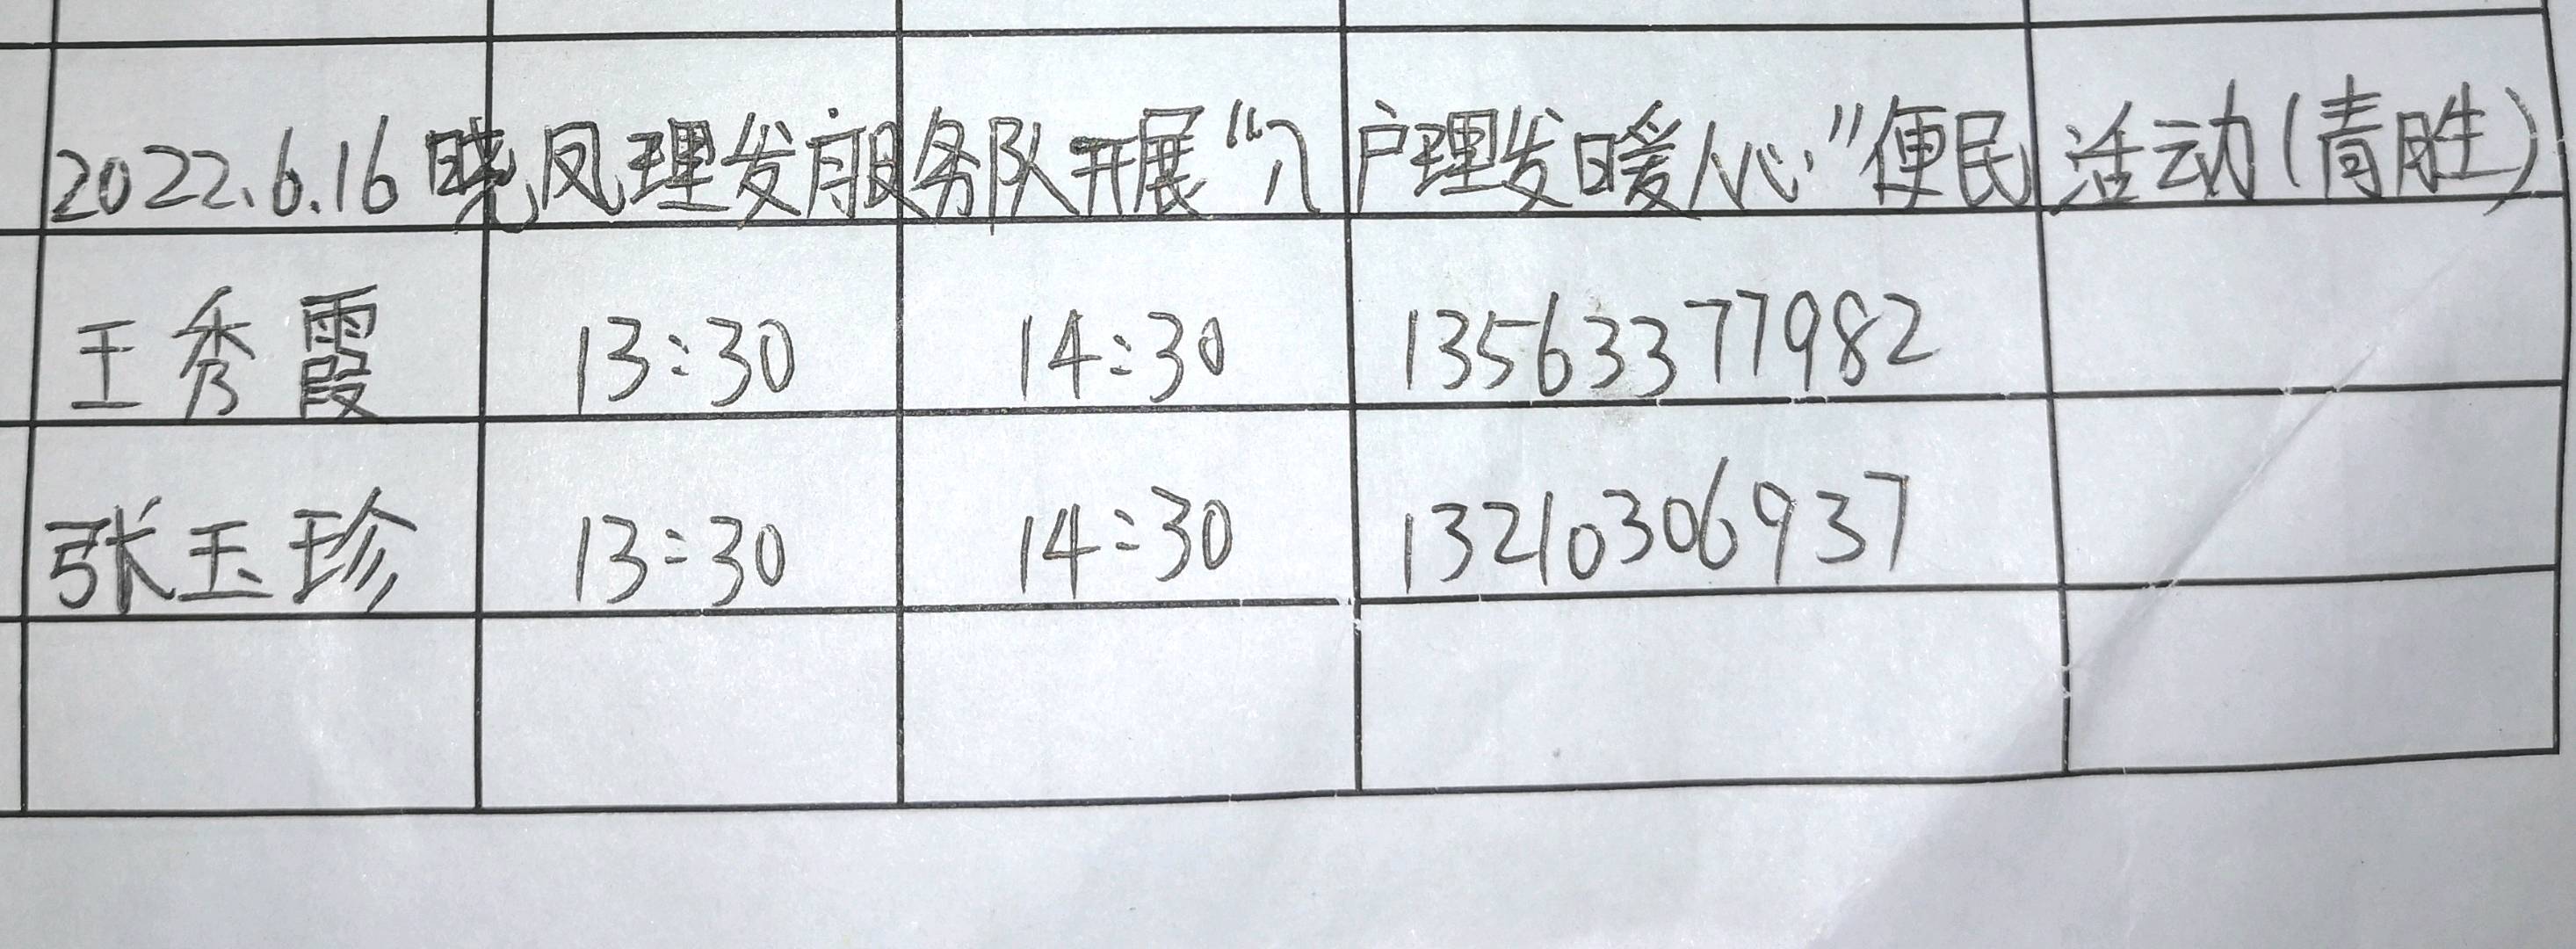 2022.6.16 晓凤理发服务队开展“入户理发暖人心”便民活动(青胜)
王秀霞 13:30 14:30 13563377982
张玉珍 13:30 14:30 13210306937